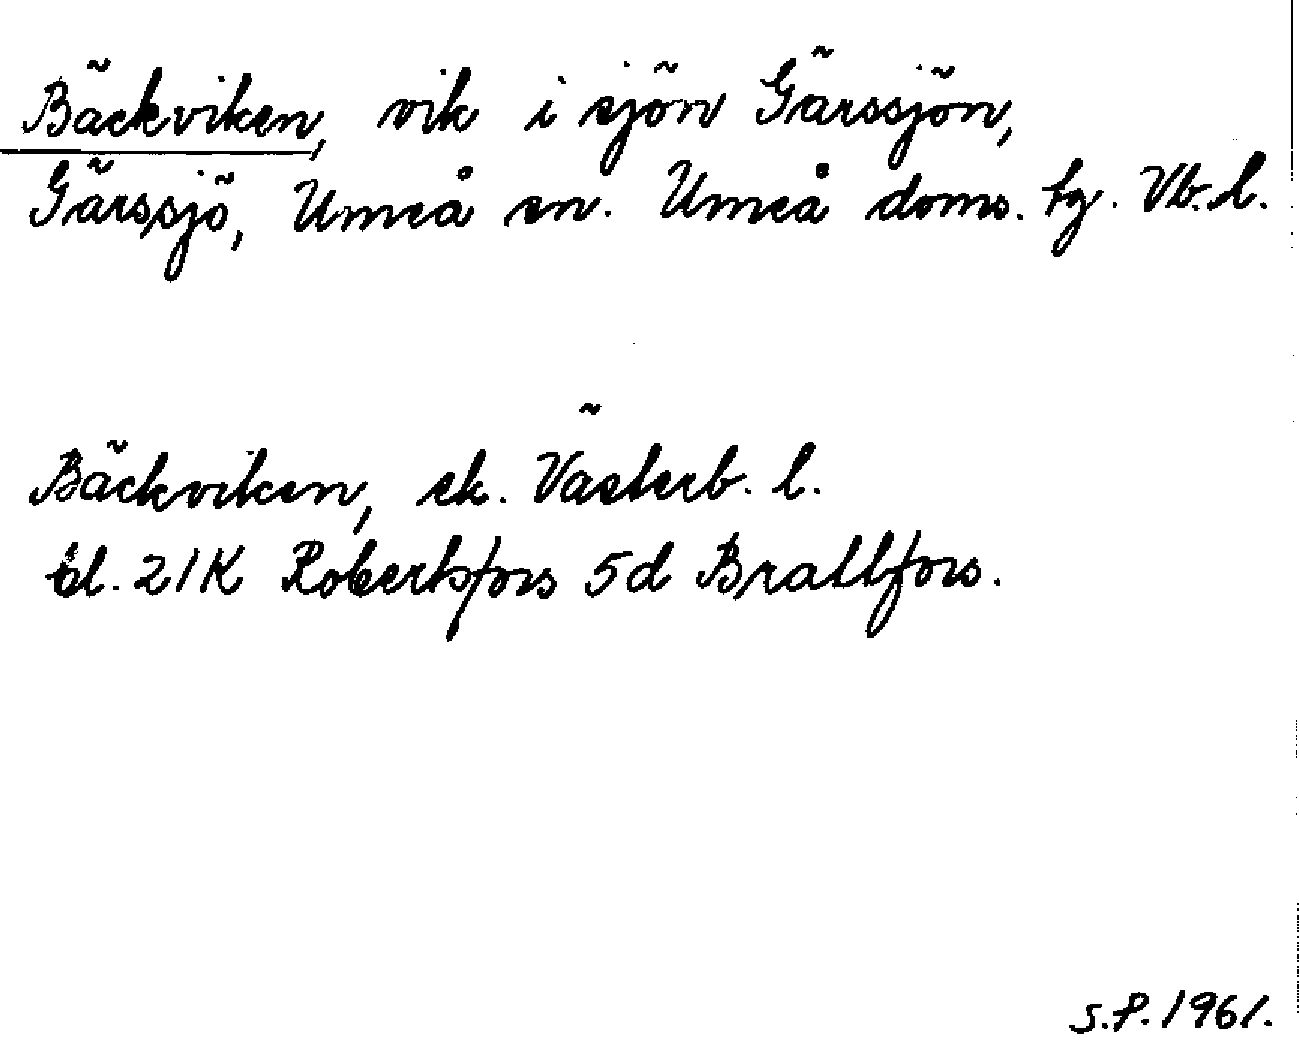 Bäckviken, vik i sjön Gärssjön,
Gärssjö, Umeå sn. Umeå doms. tg. Vb. l.
Bäckviken, ek. Västerb. l.
bl. 21K Robertsfors 5d Brattfors.
S.P. 1961.